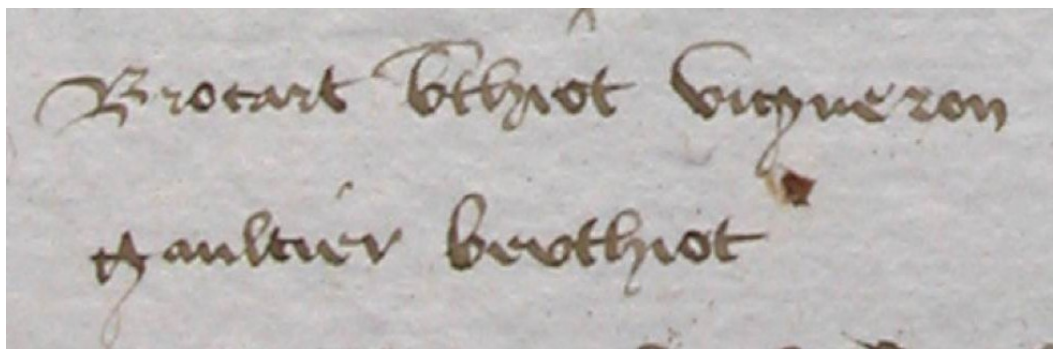 Brocart bthiot vigneron
gaultier berthiot